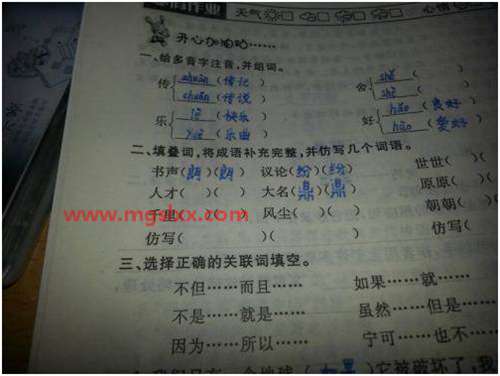 作业 天气 心情
开心加油站……
一、给多音字注音,并组词。
传 zhuàn (传记) 舍 shě ( )
chuán (传说) shè ( )
乐 lè (快乐) 好 hǎo (良好)
yuè (乐曲) hào (爱好)
二、填叠词,将成语补充完整,并仿写几个词语。
书声(朗)(朗) 议论(纷)(纷) 世世( )(
人才( )( ) 大名(鼎)(鼎) 原原( )(
千里( )( ) 风尘( )( ) 朝朝( )(
www.mgslxx.com
仿写( )( ) 仿写(
三、选择正确的关联词填空。
不但……而且…… 如果……就……
不是……就是…… 虽然……但是……
因为……所以…… 宁可……也不……
个地球 它被破坏了